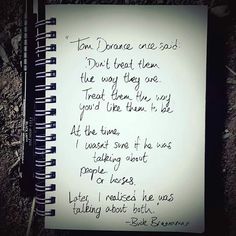 "Tom Dorance once said
'Don't treat them
the way they are.
Treat them the way
you'd like them to be
At the time,
I wasn't sure if he was
talking about
people
or horses.
Later, I realised he was
talking about both."
-Buck Brannaman